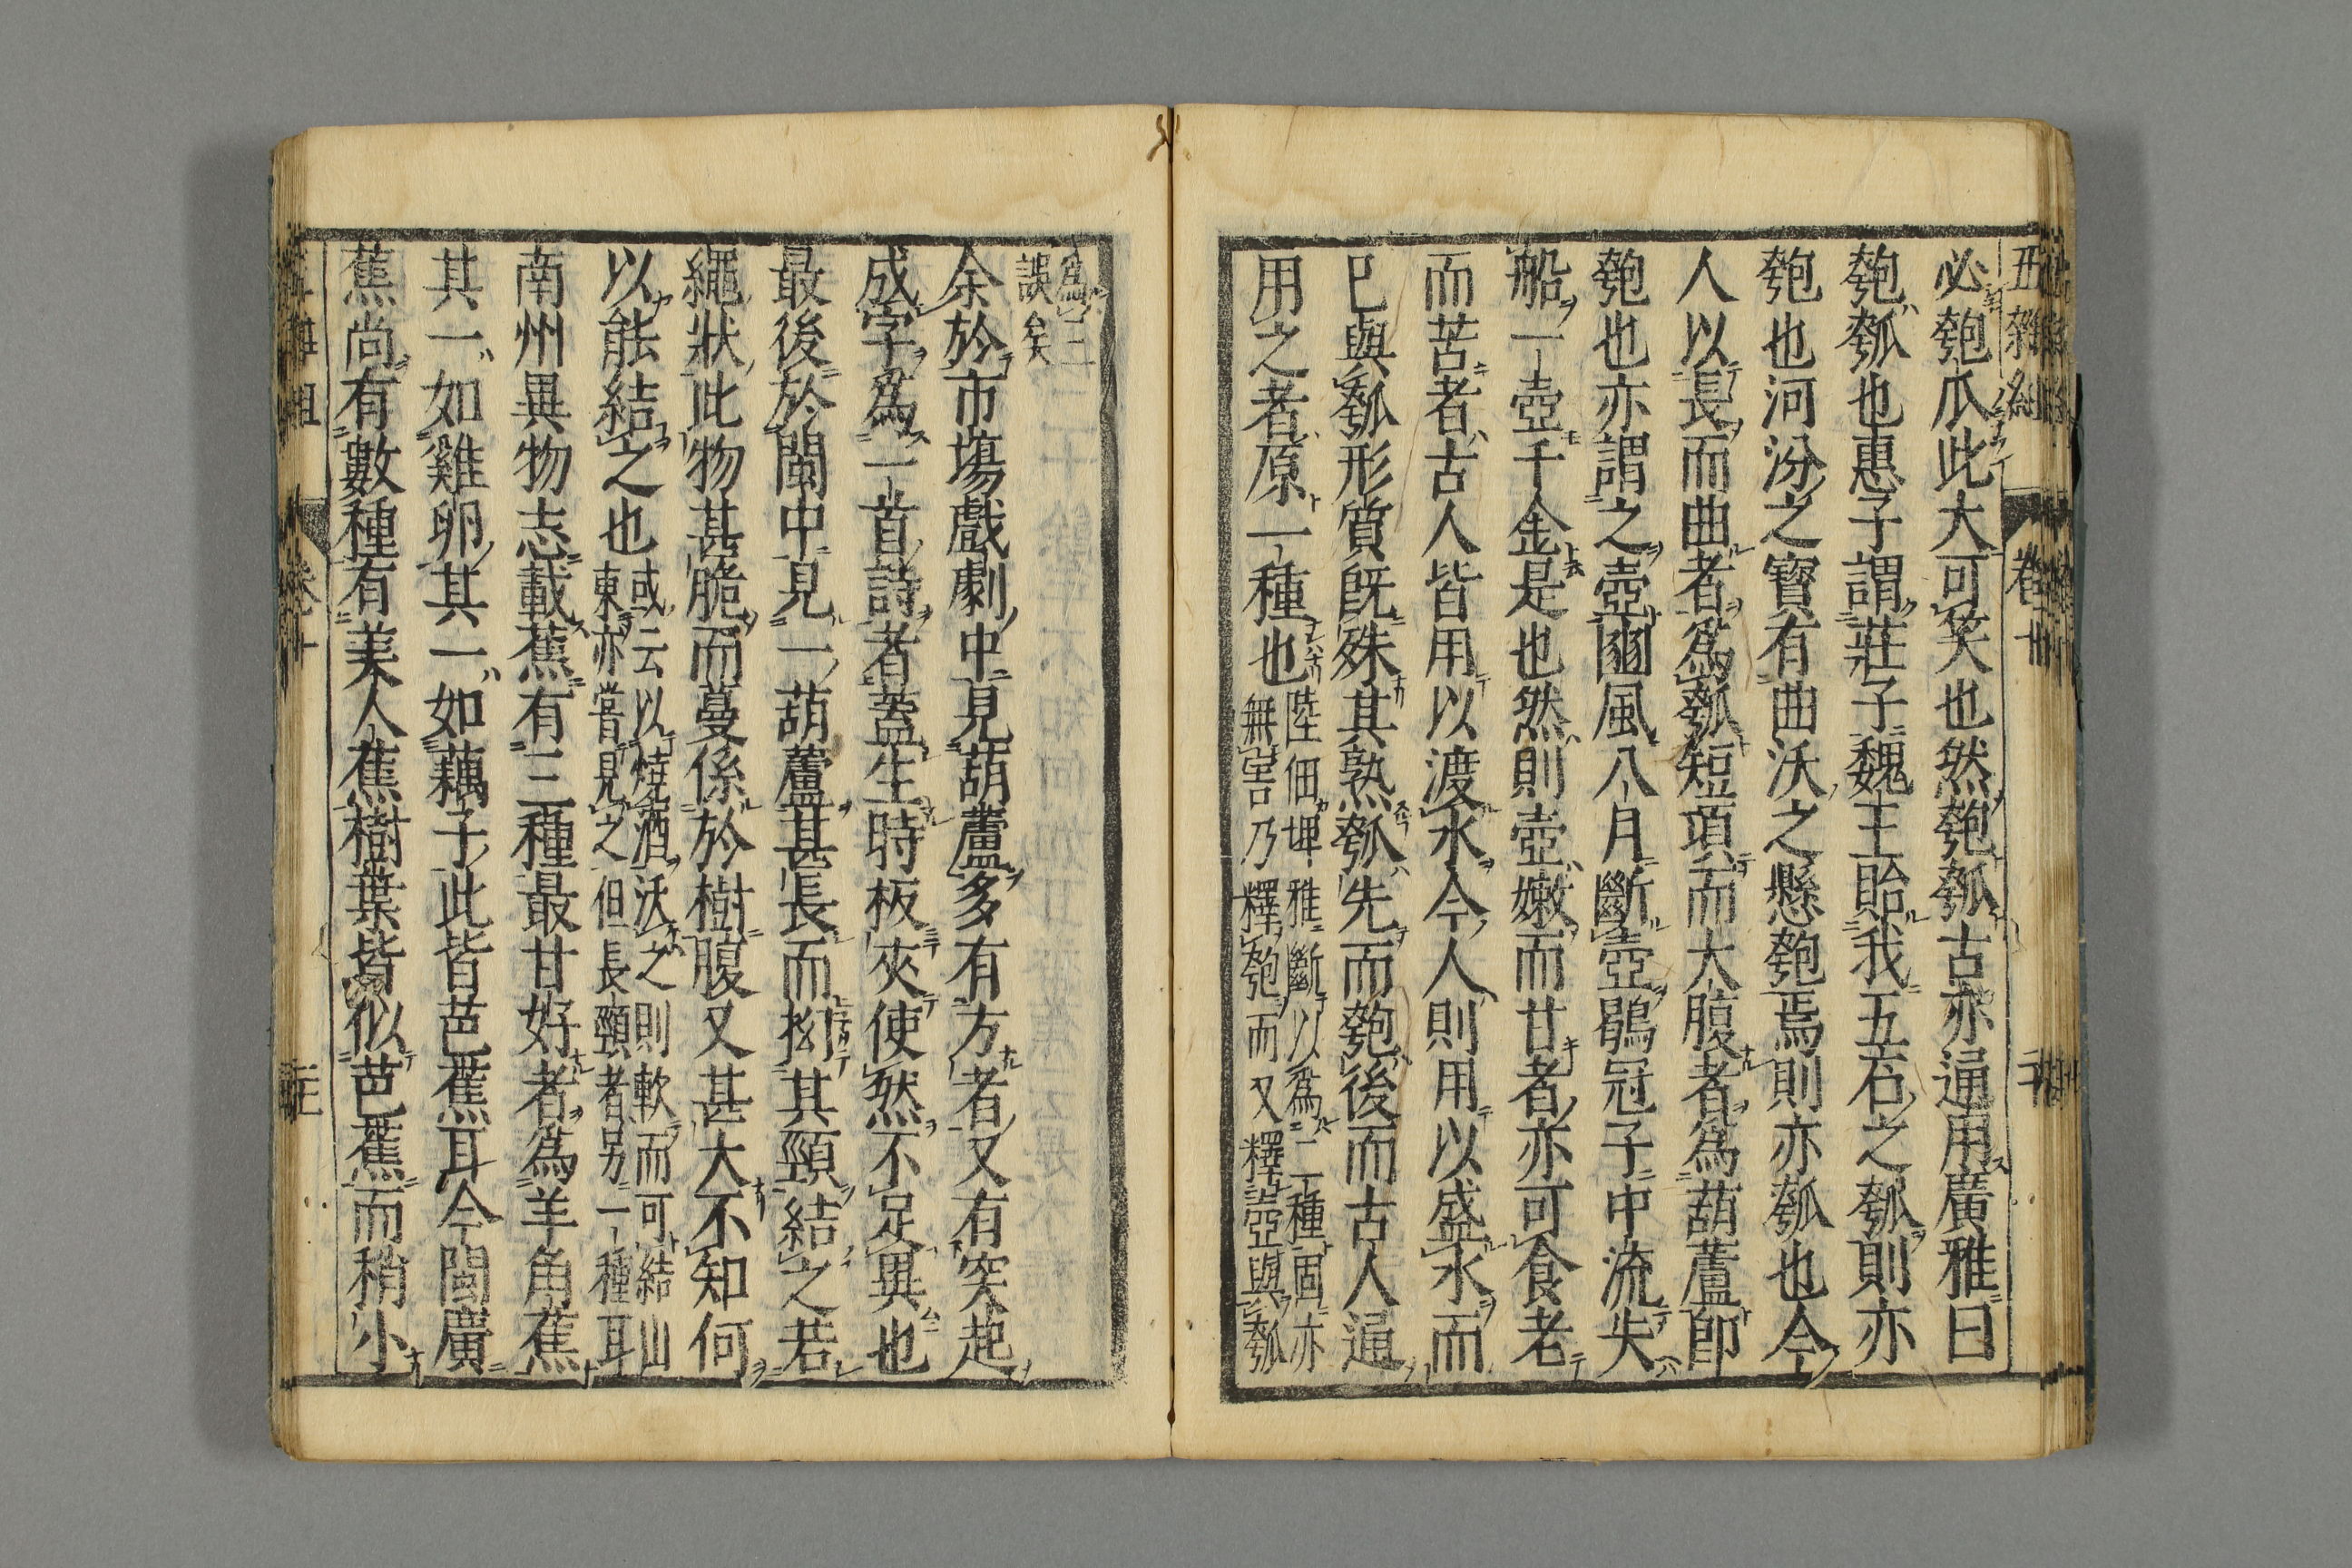 五雜組 卷十
必匏瓜此大可笑也然匏瓠古亦通用廣雅曰
匏瓠也惠子謂莊子魏王貽我五石之瓠則亦
匏也河汾之寶有曲沃之懸匏焉則亦瓠也今
人以長而曲者爲瓠短項而大腹者爲葫蘆即
匏也亦謂之壺豳風八月斷壺鶡冠子中流失
船一壺千金是也然則壺嫩而甘者亦可食老
而苦者古人皆用以渡水今人則用以盛水而
已與瓠形質既殊其熟瓠先而匏後而古人通
用之者原一種也陸佃埤雅斷以爲二種固亦
無害乃釋匏而又釋壺與瓠
爲三
誤矣
余於市場戲劇中見葫蘆多有方者又有突起
成字爲一首詩者蓋生時板夾使然不足異也
最後於閩中見一葫蘆甚長而拗其頸結之若
繩狀此物甚脆而蔓係於樹腹又甚大不知何
以能結之也或云以燒酒沃之則軟而可結山
東亦嘗見之但長頸者另一種耳
南州異物志載蕉有三種最甘好者爲羊角蕉
其一如雞卵其一如藕子此皆芭蕉耳今閩廣
蕉尚有數種有美人蕉樹葉皆似芭蕉而稍小
卷十